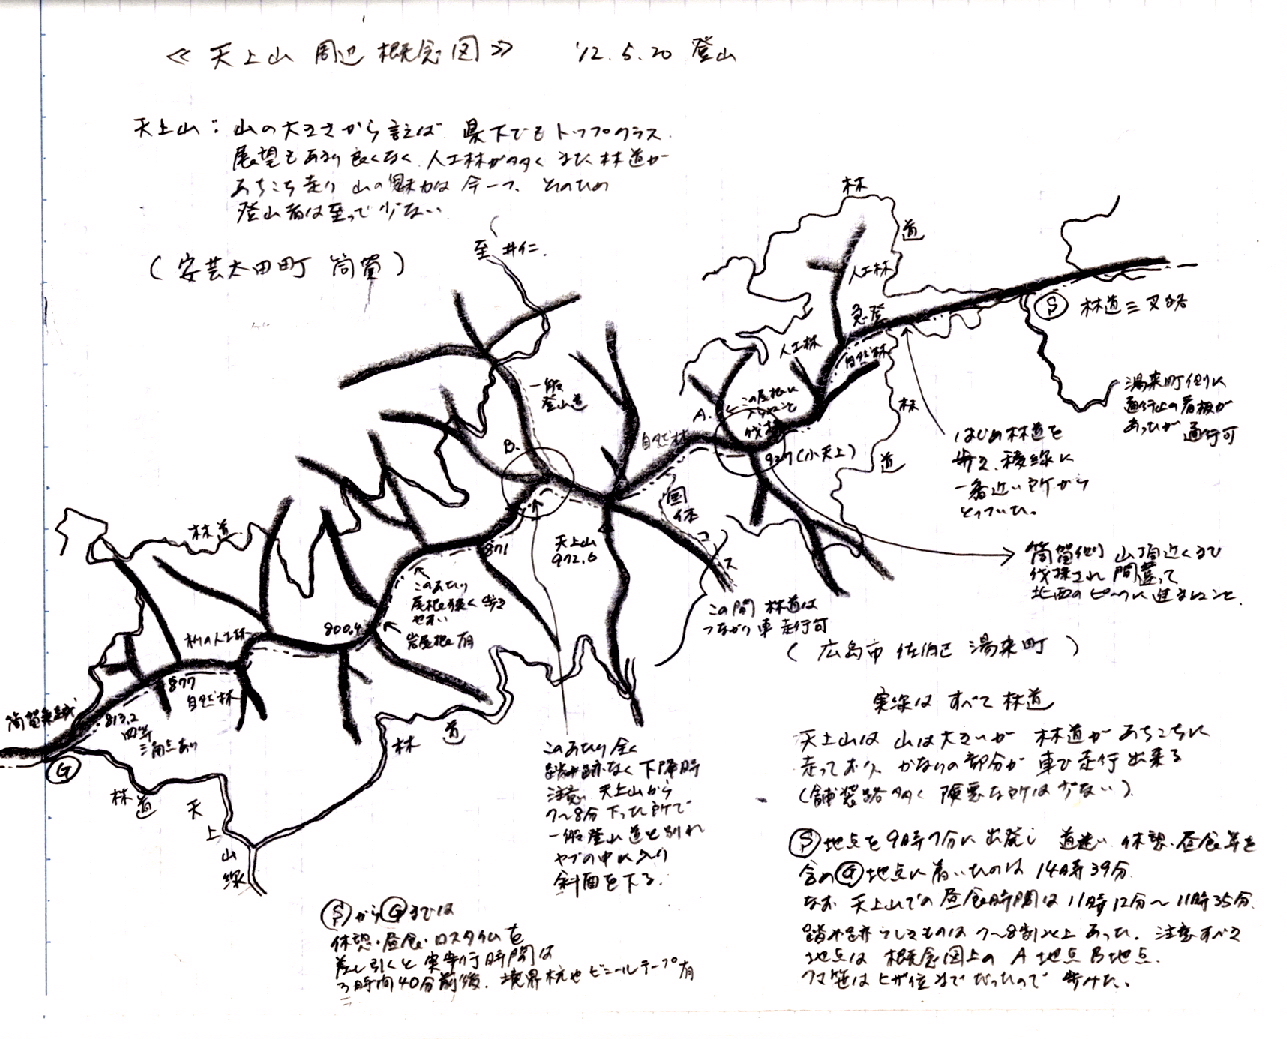 ≪ 天上山 周辺 概念図 ≫ '12.5.20 登山
天上山: 山の大きさから言えば 県下でもトップクラス.
展望もあまり良くなく 人工林が多く また 林道が
あちこち走り 山の魅力は 今一つ、そのため
登山者は至って少ない
(安芸太田町 筒賀)
至 井仁
林
道
人工林
急登
Ⓢ 林道三叉路
人工林
自然林
一般
登山道
A.
この尾根に
入らぬこと
伐採
湯来町側に
通行止の看板が
あったが 通行可
林
道
自然林
927(小天上)
はじめ林道を
歩き、稜線に
一番近い所から
とりついた。
B.
国体
コース
林道
871
天上山
972.6
筒賀側 山頂近くまで
伐採され 間違って
北西のピークに進まぬこと.
このあたり
尾根広く 歩き
やすい
岩尾根有
この間 林道は
つながり 車 走行可
800.4
(広島市 佐伯区 湯来町)
877
自然林
813.2
四等
三角点あり
Ⓖ
林道
実線は すべて 林道
林道
天上山線
天上山は 山は大きいが 林道があちこちに
走っており、かなりの部分が 車で走行出来る
(舗装路多く 険悪な所は少ない)
このあたり 全く
踏み跡なく 下降時
注意 天上山から
7〜8分 下った所で
一般登山道と別れ
ヤブの中に入り
斜面を下る.
Ⓢ地点を9時7分に出発し 道迷い 休憩・昼食等を
含め Ⓖ地点に着いたのは 14時39分.
なお 天上山での 昼食時間は 11時12分〜11時35分.
踏み跡らしきものは 7〜8割以上 あった. 注意すべき
地点は 概念図上の A地点 B地点.
クマ笹は ヒザ位までだったので 歩けた。
ⓈからⒼまでは
休憩・昼食・ロスタイムを
差し引くと 実歩行時間は
3時間40分前後. 境界杭やビニールテープ有